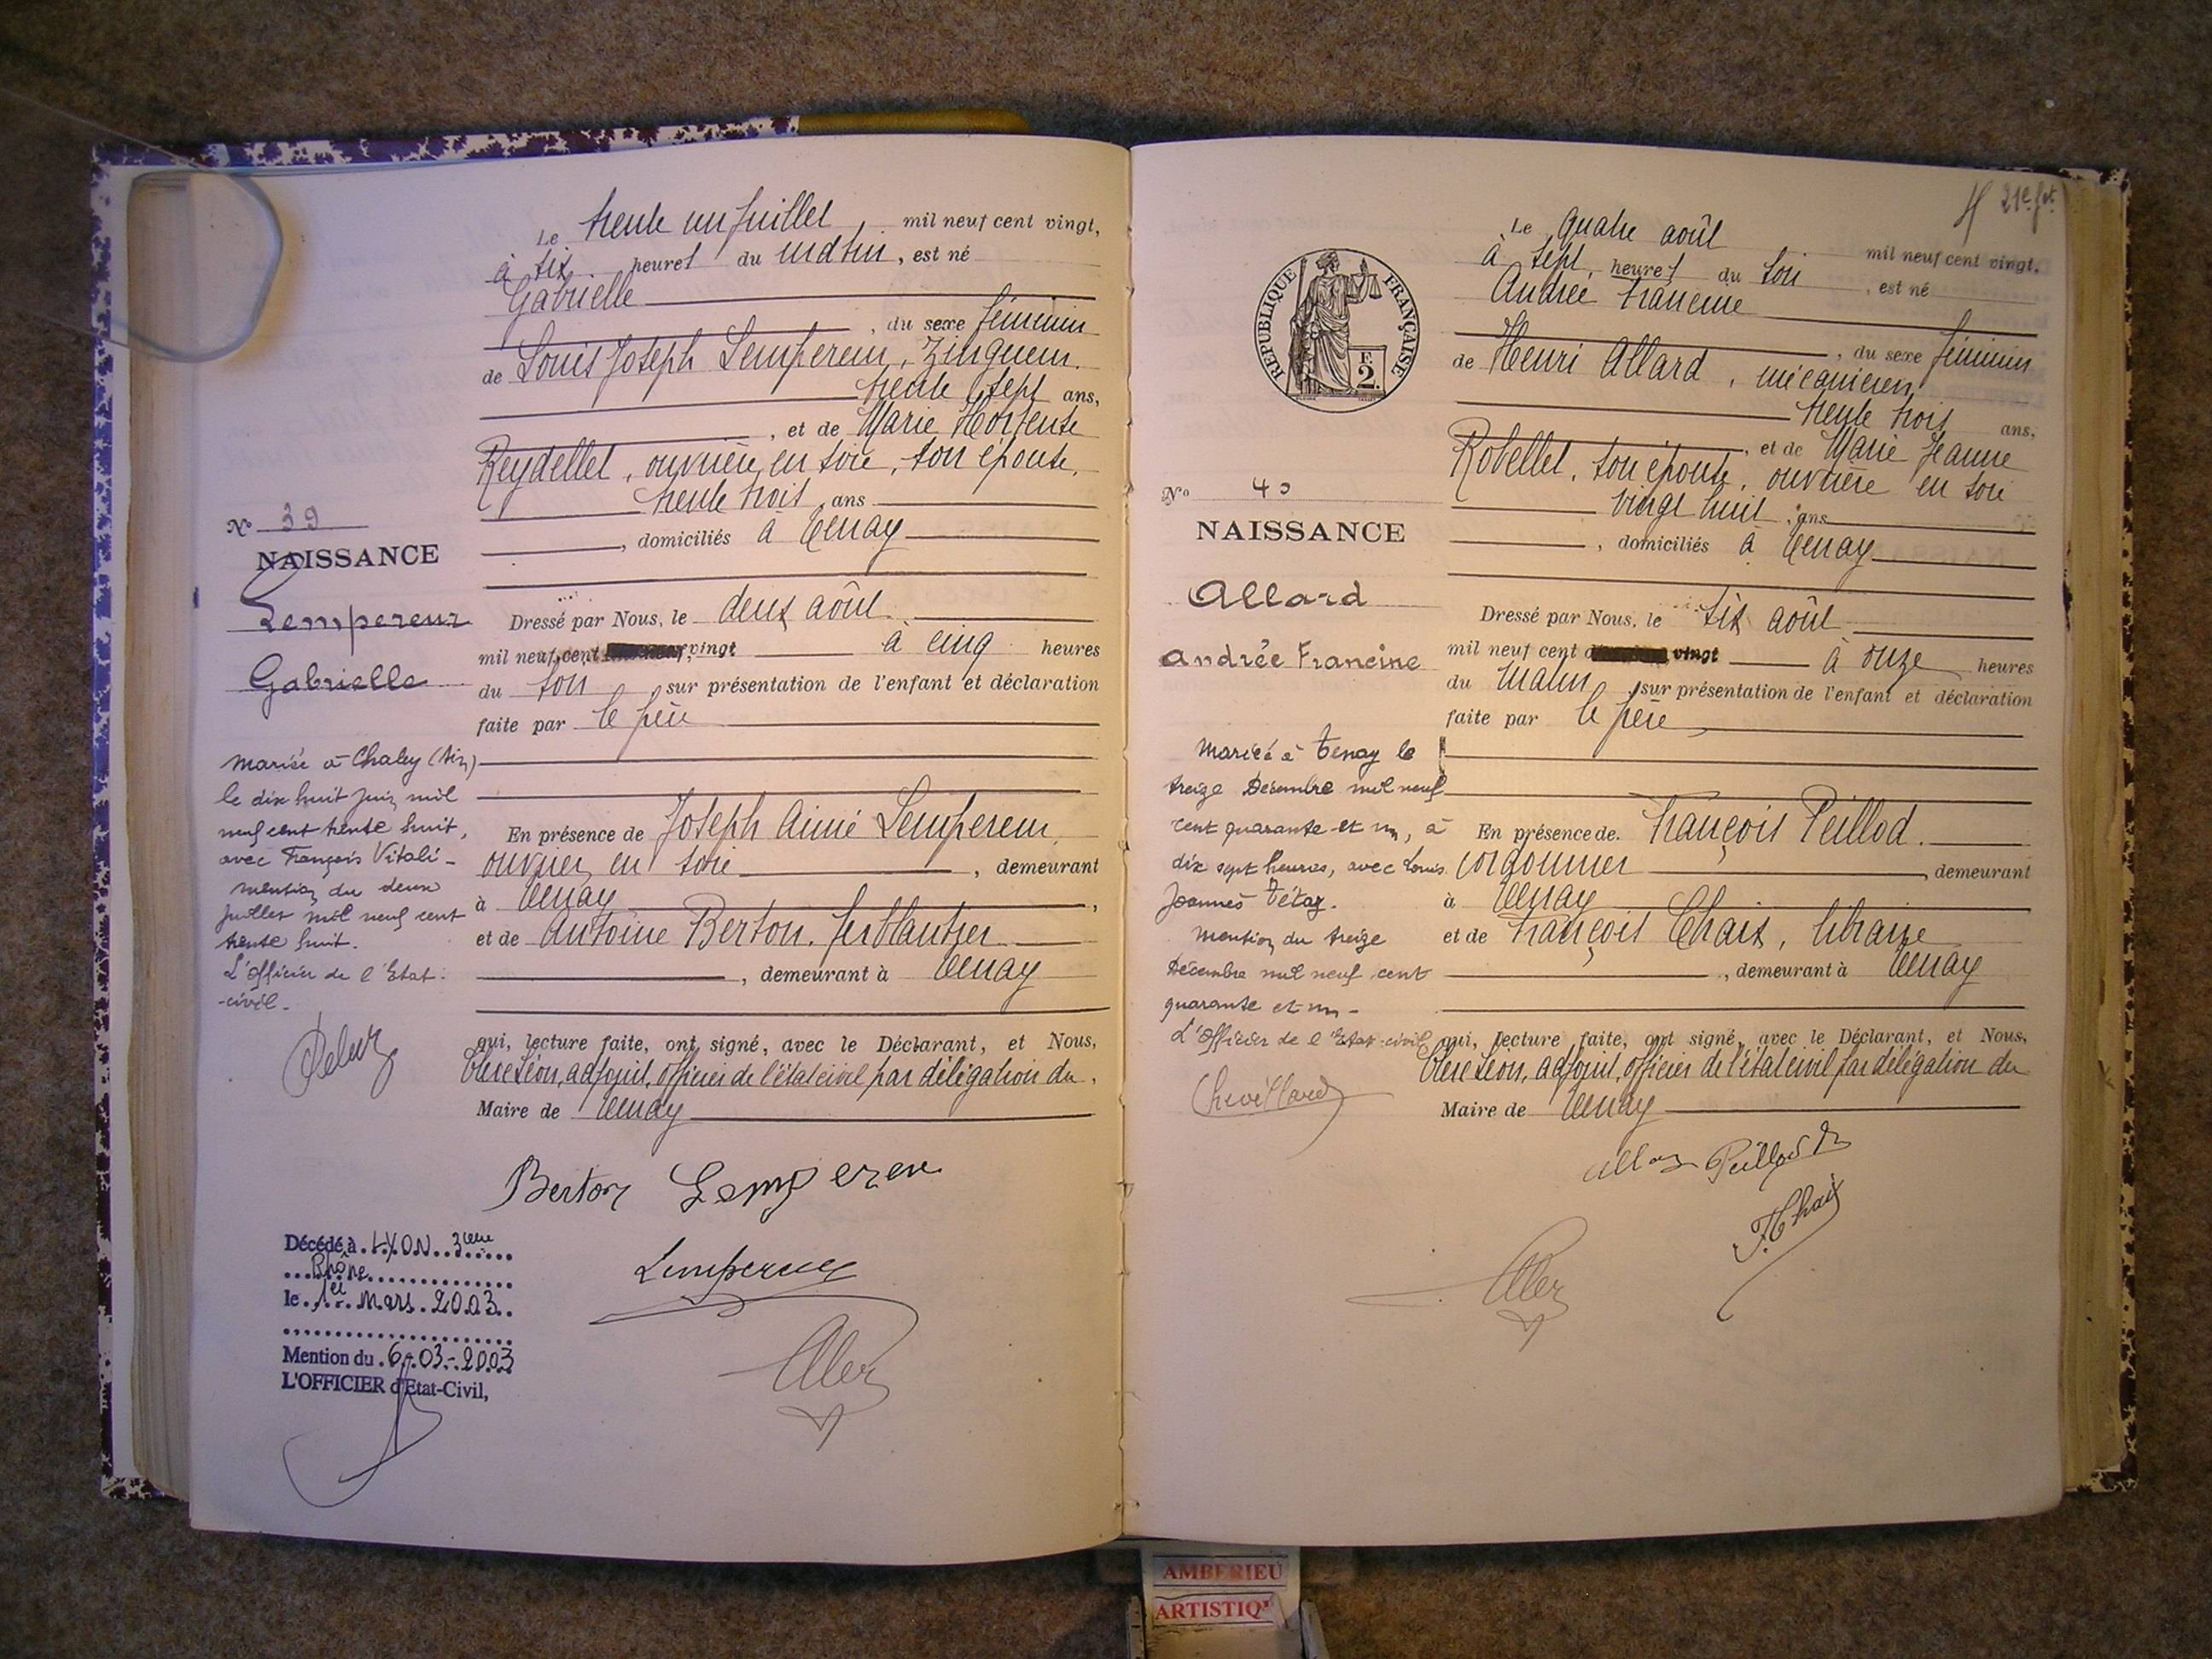 Le trente un juillet mil neuf cent vingt,
à six heures du matin, est né
Gabrielle
, du sexe féminin
de Louis Joseph Lempereur, Zingueur.
trente sept ans,
, et de Marie Hortense
Reydellet, ouvrière en soie, son épouse,
trente trois ans
, domiciliés à Tenay
Dressé par Nous, le deux août
mil neuf cent vingt à cinq heures
du soir sur présentation de l'enfant et déclaration
faite par le père
En présence de Joseph Aimé Lempereur,
ouvrier en soie, demeurant
à Tenay,
et de Antoine Berton, ferblantier
, demeurant à Tenay
qui, lecture faite, ont signé, avec le Déclarant, et Nous,
Léon, adjoint, officier de l'état civil par délégation du
Maire de Tenay
Berton Lempereur
Lempereur
N° 39
NAISSANCE
Lempereur
Gabrielle
Mariée à Chaley (Ain)
le dix huit Juin mil
neuf cent trente huit,
avec François Vitali-
mention du deux
Juillet mil neuf cent
trente huit.
L'officier de l'Etat-
-civil-
Décédé à LYON 3ème
Rhône
le 1er Mars 2003
Mention du 6-03-2003
L'OFFICIER d'Etat-Civil,
21e ft
Le quatre août mil neuf cent vingt.
à sept heures du soir, est né
Andrée Francine
, du sexe féminin
de Henri Allard, mécanicien,
trente trois ans,
, et de Marie Jeanne
Robellet, son épouse, ouvrière en soie
vingt huit ans
, domiciliés à Tenay
Dressé par Nous, le six août
mil neuf cent vingt à onze heures
du matin sur présentation de l'enfant et déclaration
faite par le père
En présence de François Peillod.
cordonnier, demeurant
à Tenay
et de François Chaix, libraire
, demeurant à Tenay
qui, lecture faite, ont signé, avec le Déclarant, et Nous,
Léon, adjoint, officier de l'état civil par délégation du
Maire de Tenay
Peillod
F. Chaix
REPUBLIQUE FRANÇAISE
F.
2.
N° 40
NAISSANCE
Allard
Andrée Francine
Mariée à Tenay le
treize Décembre mil neuf
cent quarante et un, à
dix sept heures, avec Louis
Joannès Tétaz.
Mention du treize
Décembre mil neuf cent
quarante et un-
L'Officier de l'Etat-civil
Chevillard
AMBERIEU
ARTISTIQ